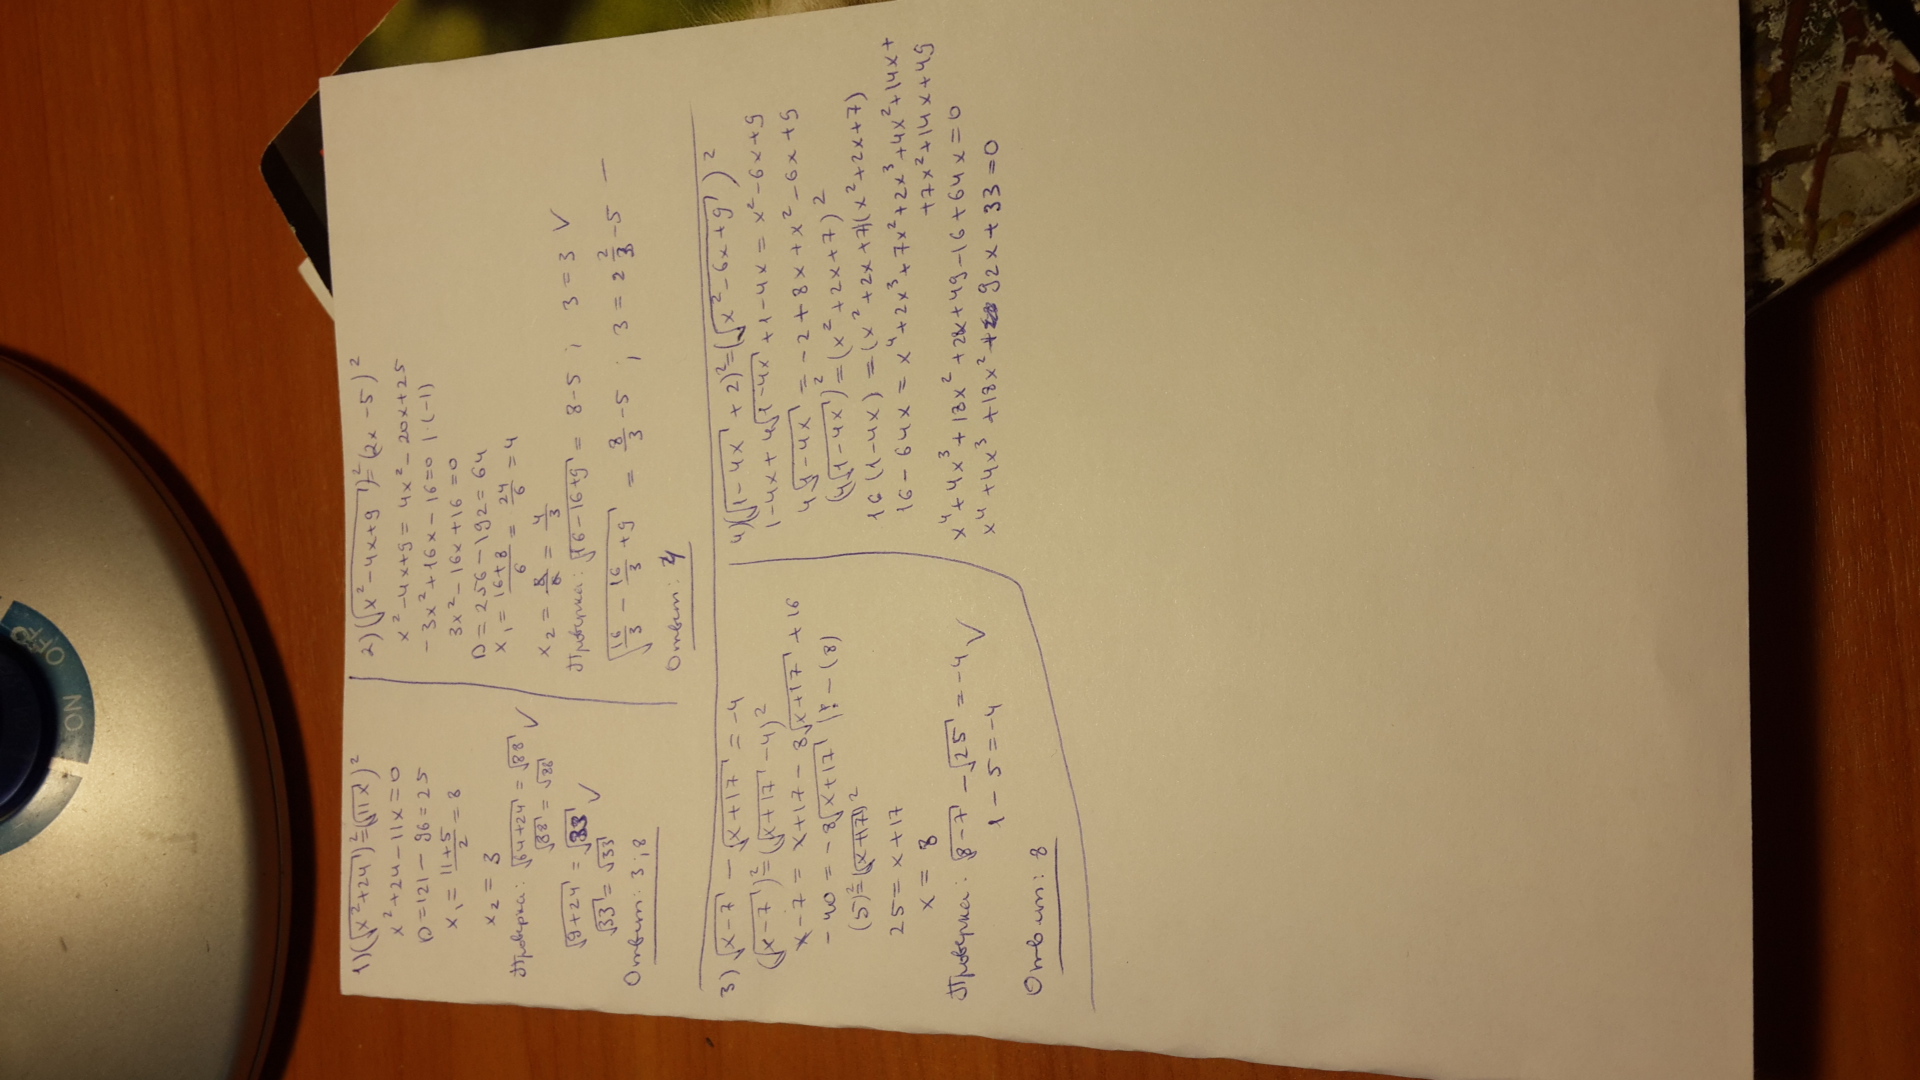 1) (√(x²+24))²=(√(11x))²
x²+24-11x=0
D=121-96=25
x₁=(11+5)/2=8
x₂=3
Проверка: √(64+24)=√88
√88=√88 V
√(9+24)=√33
√33=√33 V
Ответ: 3;8
2) (√(x²-4x+9))²=(2x-5)²
x²-4x+9=4x²-20x+25
-3x²+16x-16=0 |·(-1)
3x²-16x+16=0
D=256-192=64
x₁=(16+8)/6=24/6=4
x₂=8/6=4/3
Проверка: √(16-16+9)=8-5; 3=3 V
√(16/3-16/3+9)=8/3-5; 3=2 2/3-5 —
Ответ: 4
3) √(x-7)-√(x+17)=-4
(√(x-7))²=(√(x+17)-4)²
x-7=x+17-8√(x+17)+16
-40=-8√(x+17) |:-(8)
(5)²=(√(x+17))²
25=x+17
x=8
Проверка: √(8-7)-√25=-4
1-5=-4 V
Ответ: 8
4) (√(1-4x)+2)²=(√(x²-6x+9))²
1-4x+4√(1-4x)+1-4x=x²-6x+9
4√(1-4x)=-2+8x+x²-6x+9
(4√(1-4x))²=(x²+2x+7)²
16(1-4x)=(x²+2x+7)(x²+2x+7)
16-64x=x⁴+2x³+7x²+2x³+4x²+14x+
+7x²+14x+49
x⁴+4x³+18x²+28x+49-16+64x=0
x⁴+4x³+18x²+92x+33=0
ON
OFF